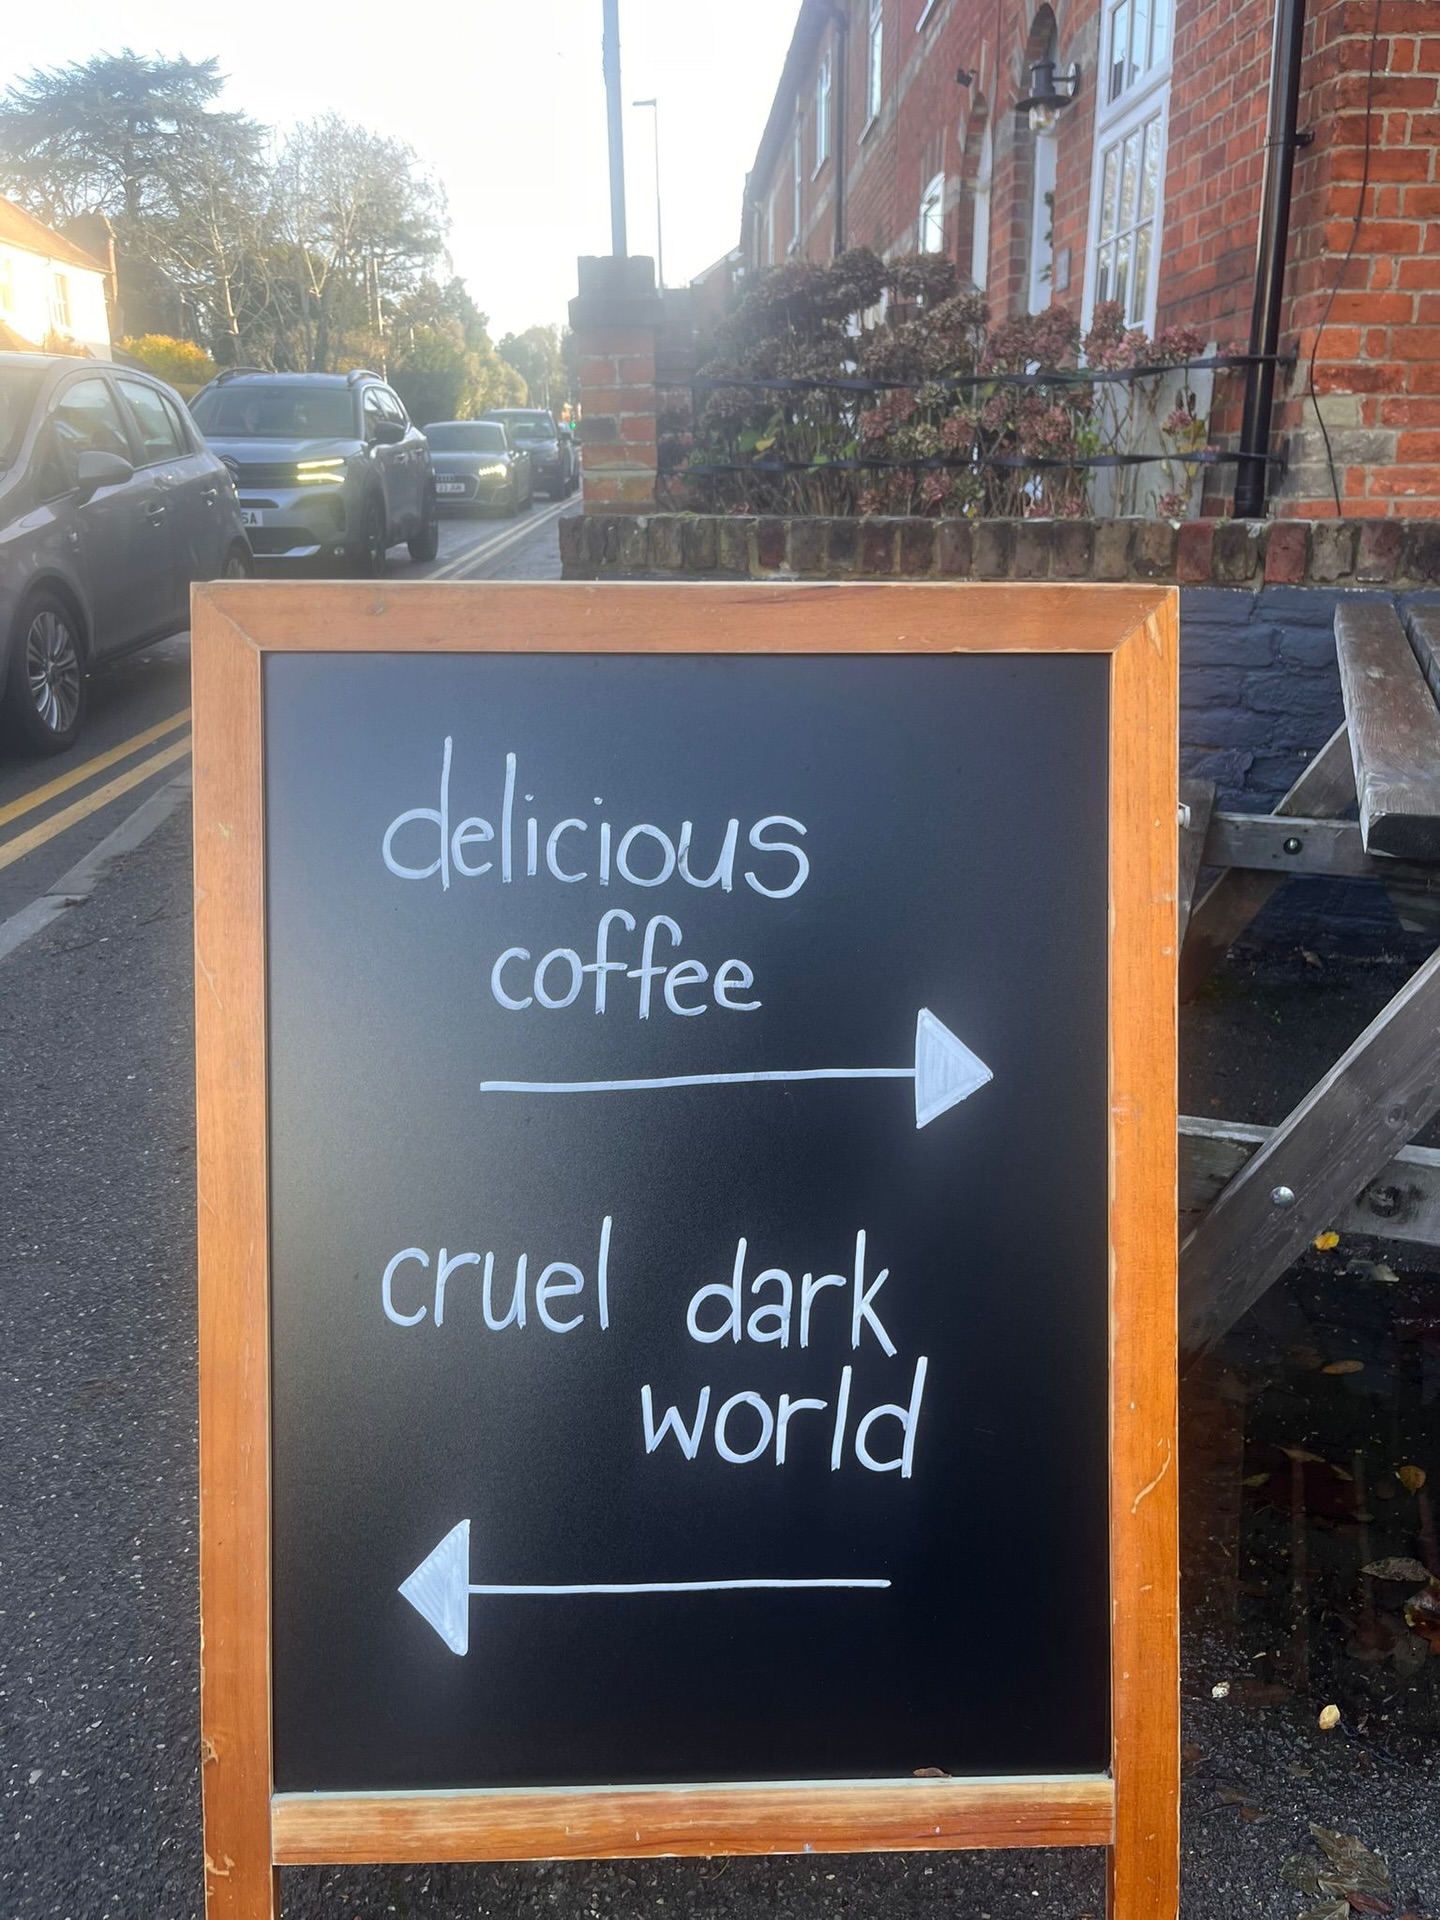 delicious
coffee
cruel dark
world